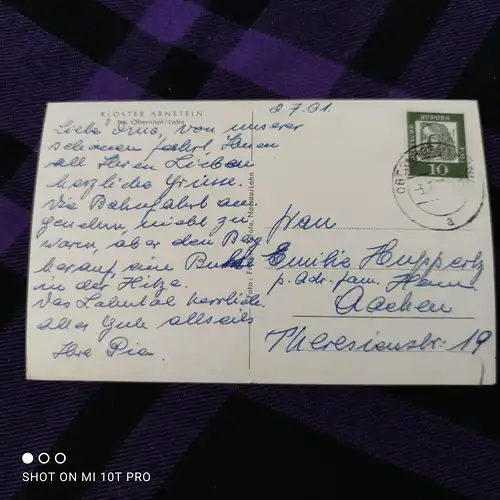 KLOSTER ARNSTEIN
bei Obernhof/Lahn
2.7.61.
Liebe Oma, von unserer
schönen Fahrt Ihnen
all Ihren Lieben
herzliche Grüsse.
Die Bahnfahrt an-
genehm, nicht zu
warm, aber den Berg
herauf, eine
in der Hitze.
Das Lahntal herrlich.
Alles Gute allseits
Ihre Pia.
Foto: Nassau/Lahn
DEUTSCHE BUNDESPOST
10
OBER
a
Frau
Emilie Huppertz
p. Adr. Fam.
Aachen
Theresienstr. 19
SHOT ON MI 10T PRO